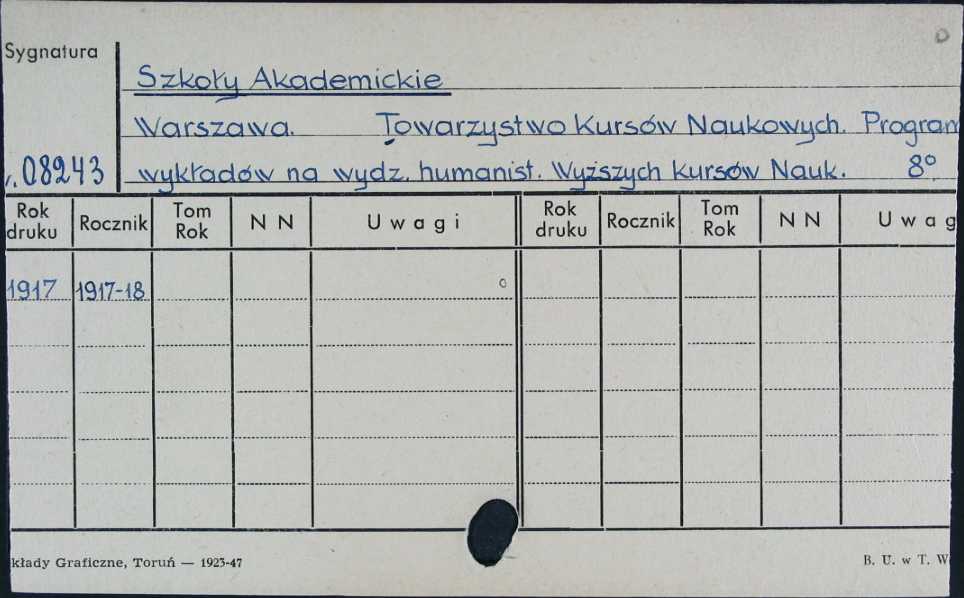 Sygnatura
Szkoły Akademickie
Warszawa. Towarzystwo Kursów Naukowych. Program
08243 wykładów na wydz. humanist. Wyższych Kursów Nauk. 8°
Rok druku Rocznik Tom Rok N N Uwagi Rok druku Rocznik Tom Rok N N Uwag
1917 1917-18
kłady Graficzne, Toruń — 1923-47 B. U. w T. W